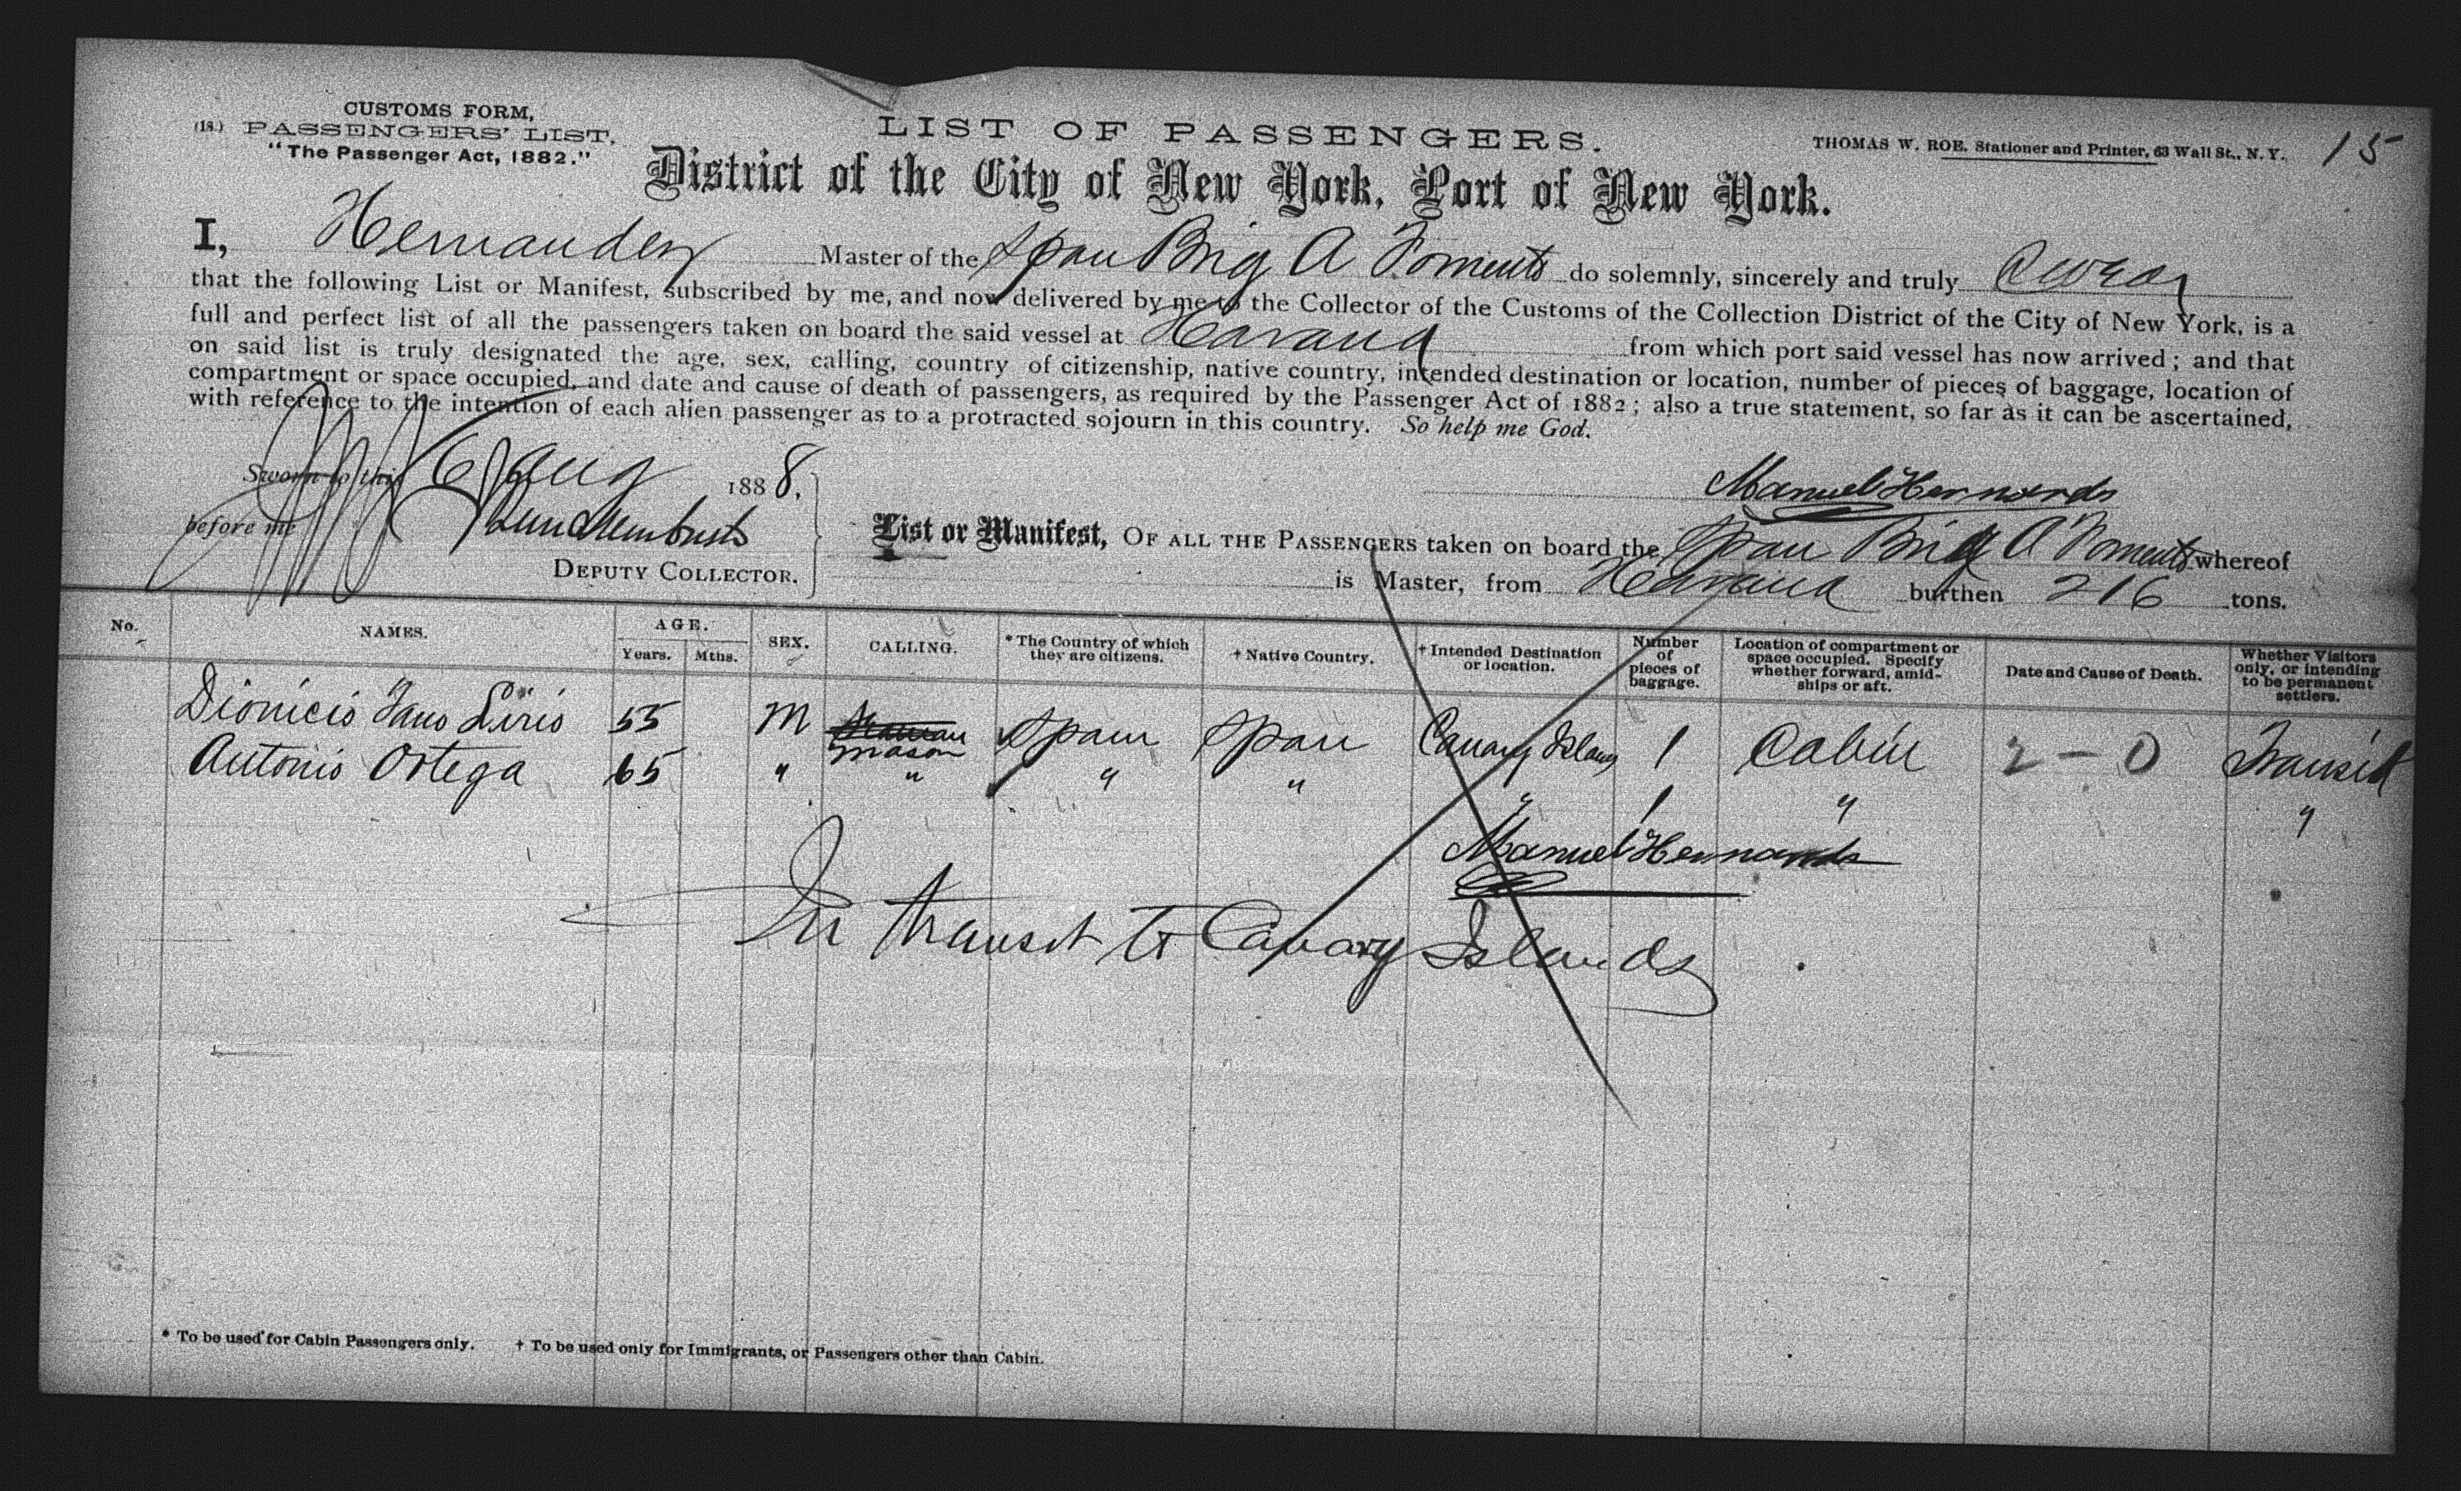 CUSTOMS FORM,
(18.) PASSENGERS' LIST.
"The Passenger Act, 1882."
LIST OF PASSENGERS.
THOMAS W. ROE, Stationer and Printer, 63 Wall St., N. Y.
15
District of the City of New York, Port of New York.
I, Hernandez Master of the Span Brig A Fomento do solemnly, sincerely and truly Swear
that the following List or Manifest, subscribed by me, and now delivered by me to the Collector of the Customs of the Collection District of the City of New York, is a
full and perfect list of all the passengers taken on board the said vessel at Havana from which port said vessel has now arrived; and that
on said list is truly designated the age, sex, calling, country of citizenship, native country, intended destination or location, number of pieces of baggage, location of
compartment or space occupied, and date and cause of death of passengers, as required by the Passenger Act of 1882; also a true statement, so far as it can be ascertained,
with reference to the intention of each alien passenger as to a protracted sojourn in this country. So help me God.
Sworn to this 6 Aug 1888,
before me
DEPUTY COLLECTOR.
Manuel Hernands
List or Manifest, OF ALL THE PASSENGERS taken on board the Span Brig A Fomento whereof
is Master, from Havana burthen 216 tons.
No. NAMES. AGE. Years. Mths. SEX. CALLING. * The Country of which they are citizens. † Native Country. † Intended Destination or location. Number of pieces of baggage. Location of compartment or space occupied. Specify whether forward, amidships or aft. Date and Cause of Death. Whether Visitors only, or intending to be permanent settlers.
Dionicio Liris 55 M Mason Spain Span Canary Islans 1 Cabin 2 - 0 Transit
Antonio Ortega 65 " " " " " 1 " "
Manuel Hernands
In transit to Canary Islands
* To be used for Cabin Passengers only. † To be used only for Immigrants, or Passengers other than Cabin.